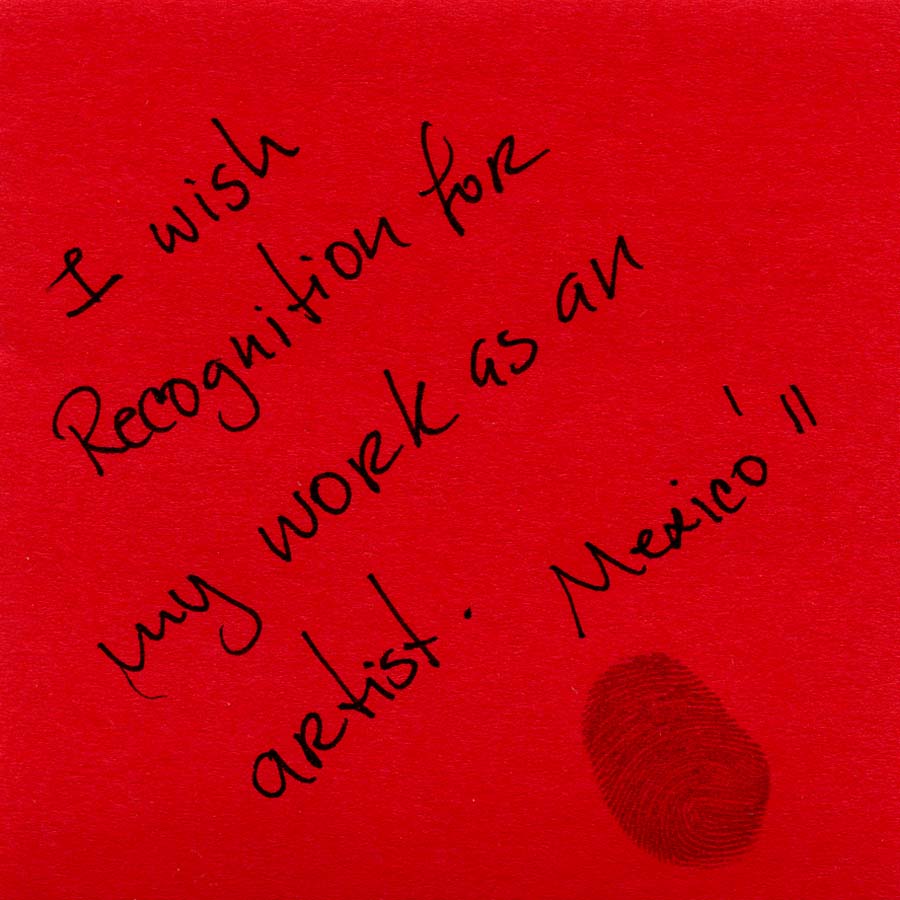 I wish
Recognition for
my work as an
artist. Mexico '11